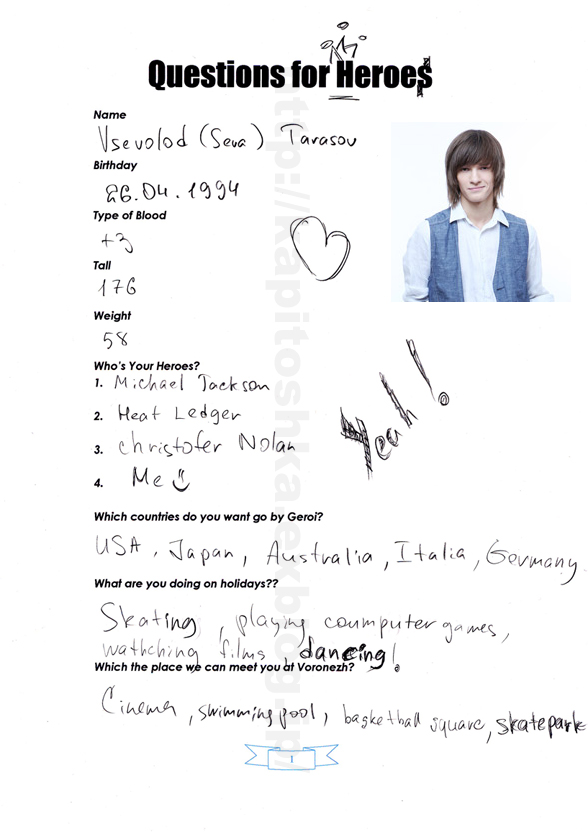 Questions for Heroes
Name
Vsevolod (Seva) Tarasov
Birthday
26.04.1994
Type of Blood
+3
Tall
176
Weight
58
Who's Your Heroes?
1. Michael Jackson
2. Heat Ledger
3. Christofer Nolan
4. Me
Yeah!
Which countries do you want go by Geroi?
USA, Japan, Australia, Italia, Germany
What are you doing on holidays??
Skating, playing coumputer games,
wathching films, dancing!
Which the place we can meet you at Voronezh?
Cinema, swimming pool, basketball square, skatepark
1